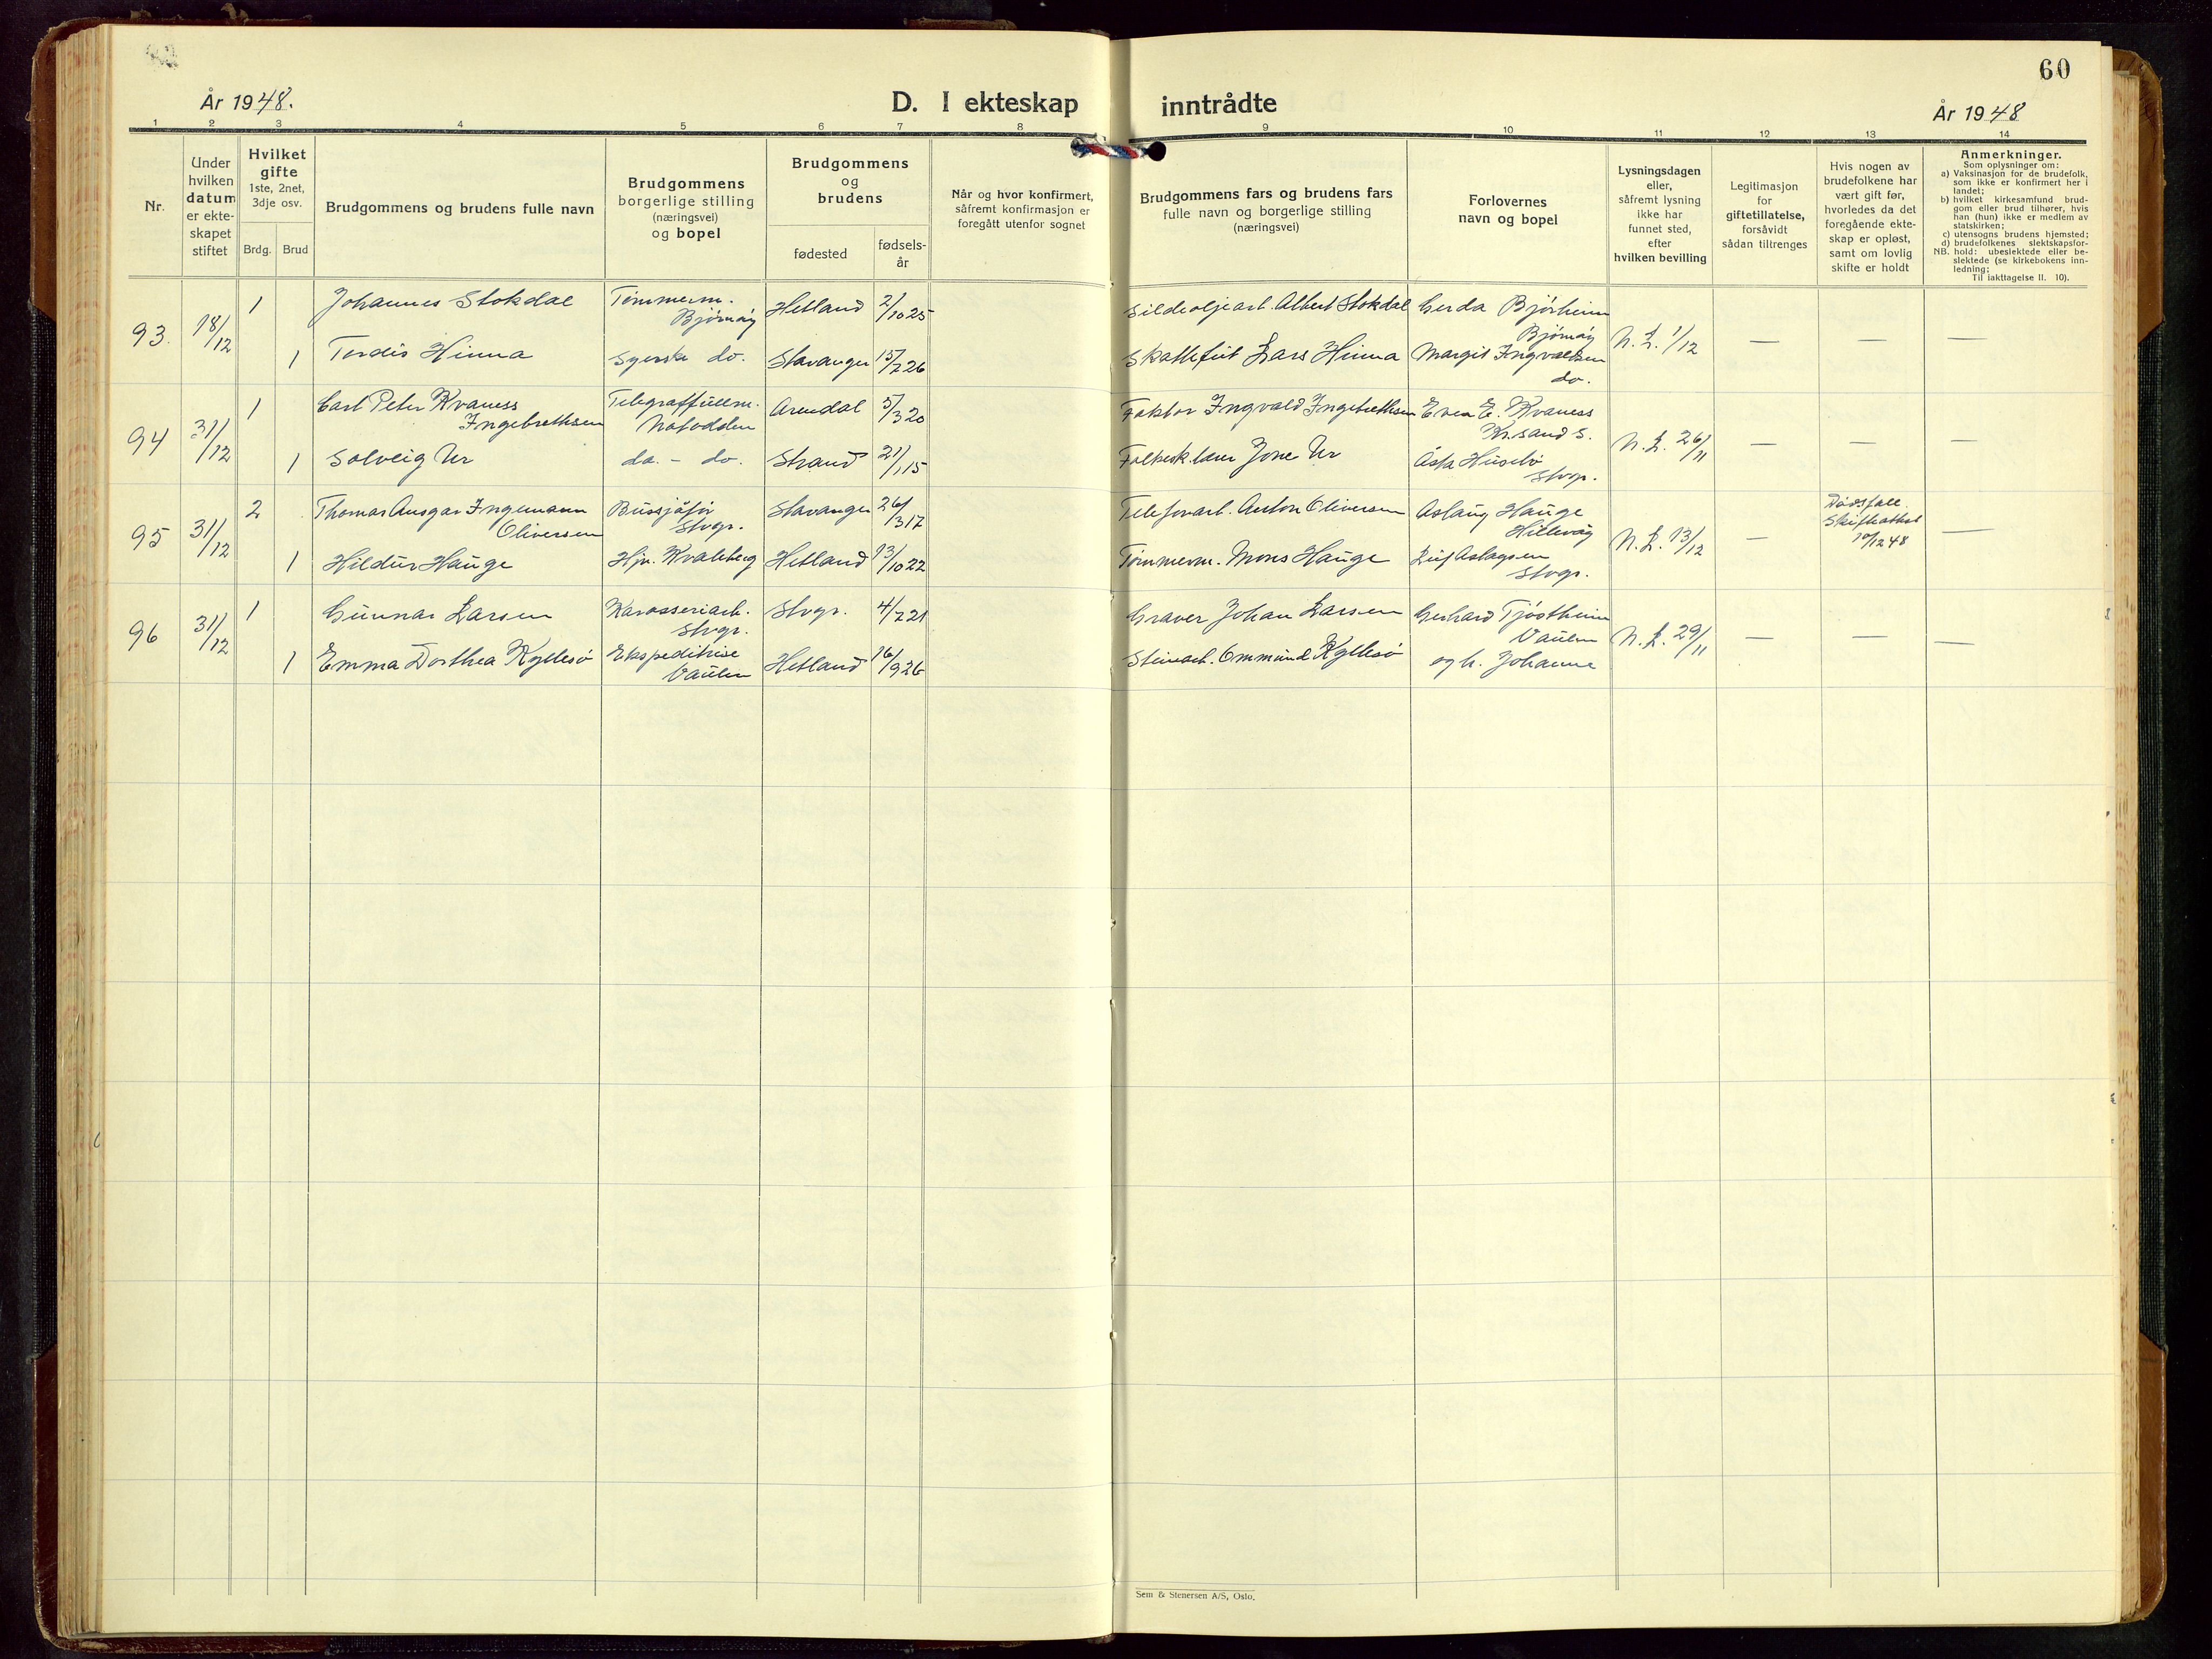 60
År 1948.
D. I ekteskap inntrådte
År 1948
1 2 3 4 5 6 7 8 9 10 11 12 13 14
Nr.
Under
hvilken
datum
er ekte-
skapet
stiftet
Hvilket
gifte
1ste, 2net,
3dje osv.
Brdg. Brud
Brudgommens og brudens fulle navn
Brudgommens
borgerlige stilling
(næringsvei)
og bopel
Brudgommens
og
brudens
fødested
fødsels-
år
Når og hvor konfirmert,
såfremt konfirmasjon er
foregått utenfor sognet
Brudgommens fars og brudens fars
fulle navn og borgerlige stilling
(næringsvei)
Forlovernes
navn og bopel
Lysningsdagen
eller,
såfremt lysning
ikke har
funnet sted,
efter
hvilken bevilling
Legitimasjon
for
giftetillatelse,
forsåvidt
sådan tiltrenges
Hvis nogen av
brudefolkene har
vært gift før,
hvorledes da det
foregående ekte-
skap er opløst,
samt om lovlig
skifte er holdt
Anmerkninger.
Som oplysninger om:
a) Vaksinasjon for de brudefolk,
som ikke er konfirmert her i
landet;
b) hvilket kirkesamfund brud-
gom eller brud tilhører, hvis
han (hun) ikke er medlem av
statskirken;
c) utensogns brudens hjemsted;
d) brudefolkenes slektskapsfor-
NB. hold: ubeslektede eller be-
slektede (se kirkebokens inn-
ledning;
Til iakttagelse II. 10).
93. 18/12
1 Johannes Stokdal Tømmerm. Bjørnøy Hetland 2/10 25 Sildeoljearb. Albert Stokdal Gerda Bjørheim Bjørnøy
1 Tordis Hinna Syerske do. Stavanger 15/7 26 Skattefut Lars Hinna Margit Ingvaldsen do.
N. L. 1/12 — — —
94 31/12
1 Carl Peter Kvaness Ingebrethsen Telegraffullm. Notodden Arendal 5/3 20 Faktor Ingvald Ingebrethsen Even E. Kvaness Kr.sand S.
1 Solveig Ur do. - do. Strand 21/1 15 Folkesk.lærer Jone Ur Åsta Husebø Stvgr.
N. L. 26/11 — — —
95 31/12
2 Thomas Ansgar Ingemann Oliversen Bussjåfør Stvgr. Stavanger 26/3 17 Telefonarb. Anton Oliversen Aslaug Hauge Hillevåg
1 Hildur Hauge Hjv. Kvaleberg Hetland 13/10 22 Tømmerm. Mons Hauge Leif Aslagsen Stvgr.
N. L. 13/12 — Dødsfall. Skifteattest 10/12 48 —
96 31/12
1 Gunnar Larsen Karosseriarb. Stvgr. Stvgr. 4/7 21 Graver Johan Larsen Gerhard Tjøstheim Vaulen
1 Emma Dorthea Kyllesø Ekspeditrise Vaulen Hetland 16/9 26 Steinarb. Ommund Kyllesø og h. Johanne
N. L. 29/11 — — —
Sem & Stenersen A/S, Oslo.